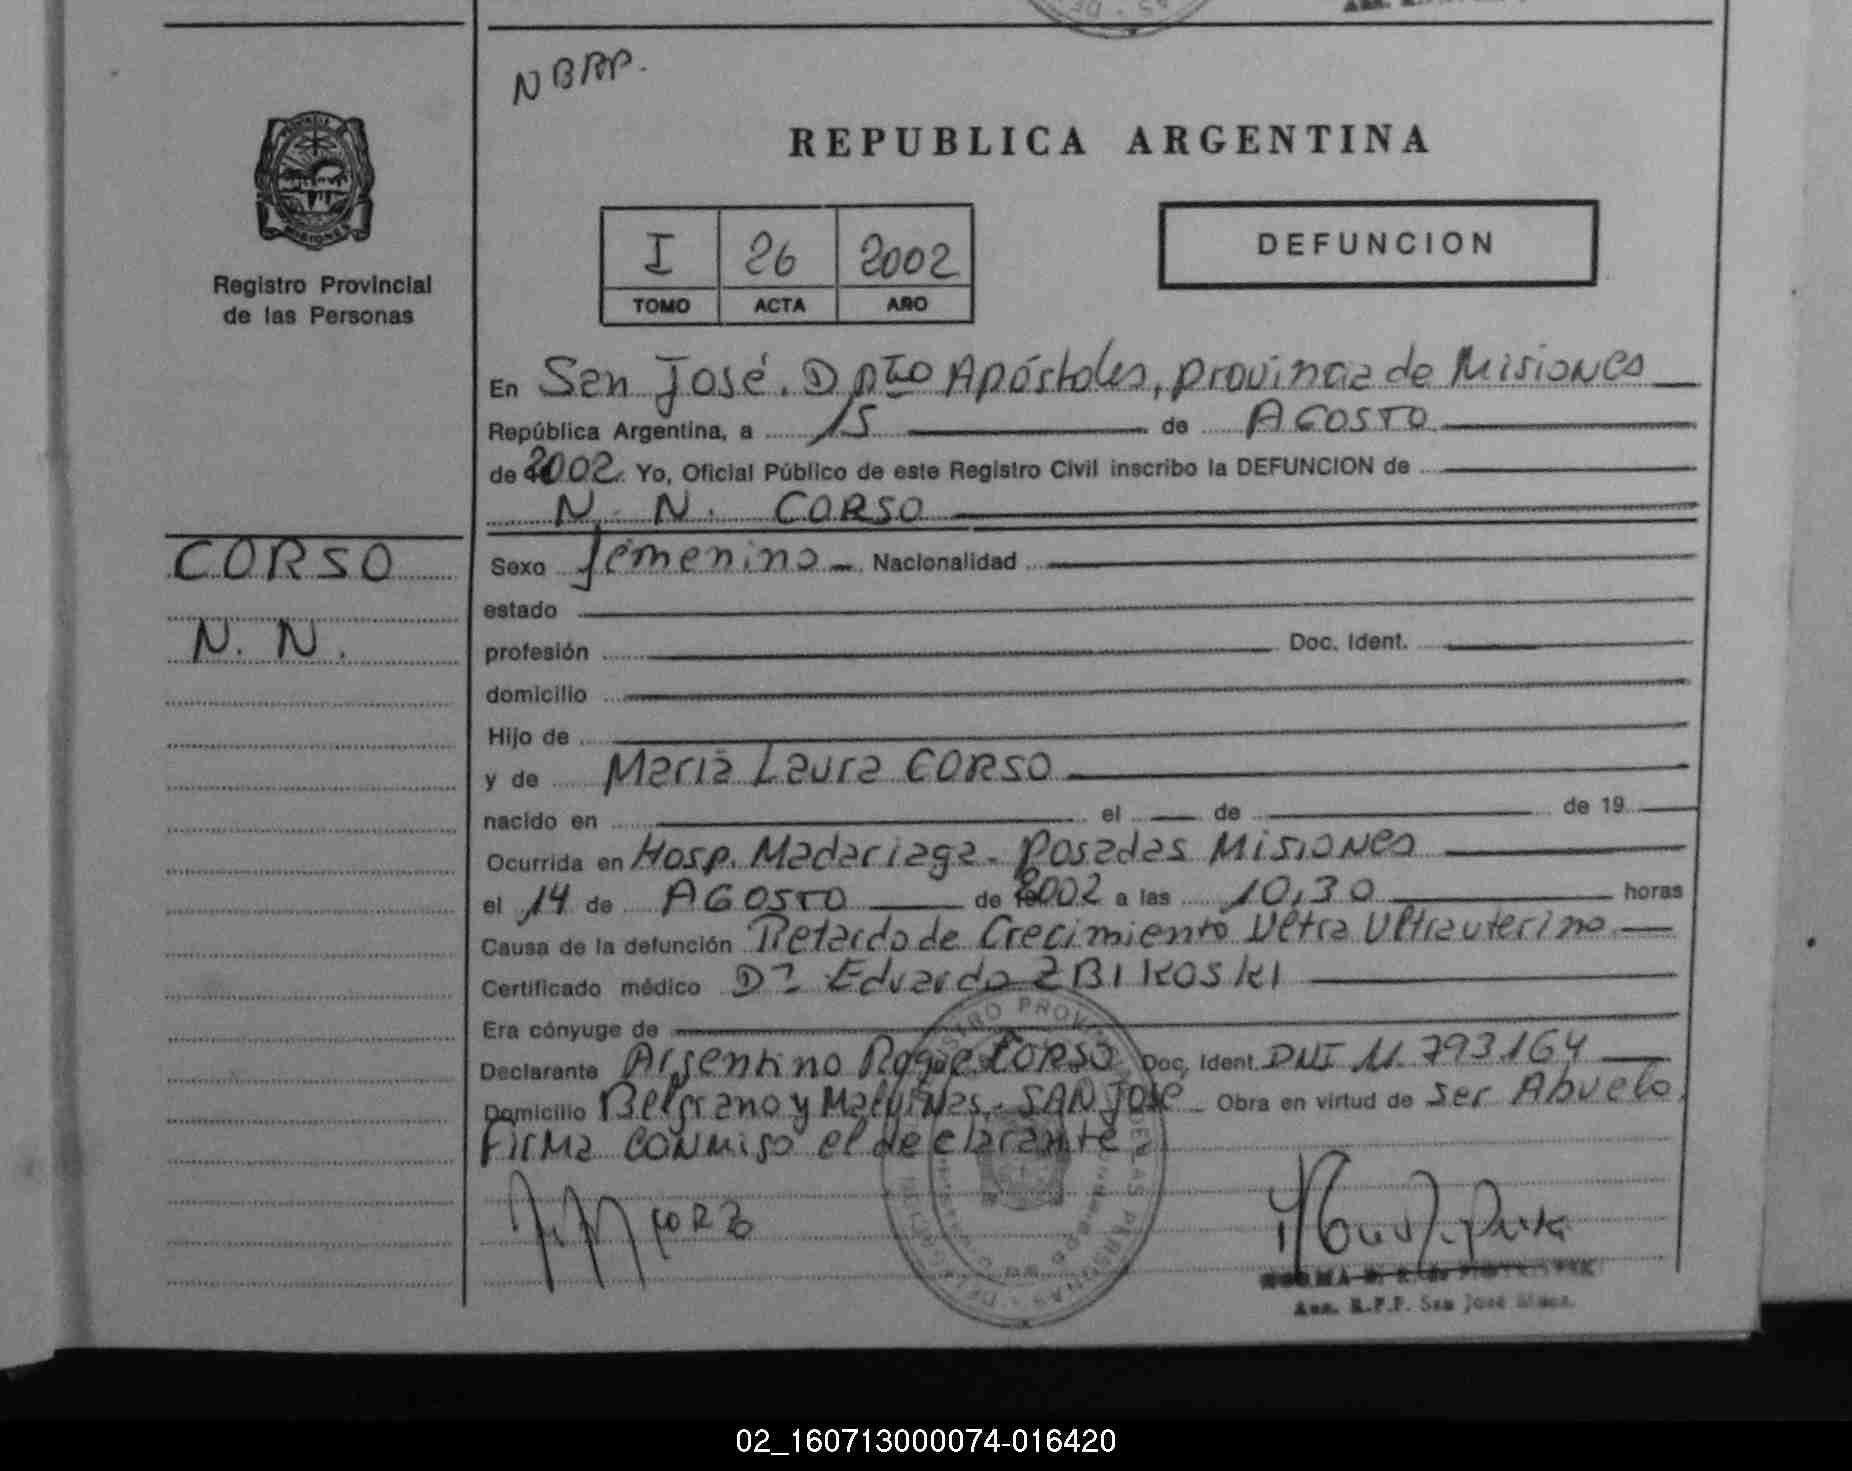 NBAP.
REPUBLICA ARGENTINA
MISIONES
Registro Provincial
de las Personas
I 26 2002
TOMO ACTA AÑO
DEFUNCION
En San José. Dpto Apóstoles, provincia de Misiones
República Argentina, a 15 de AGOSTO
de 2002. Yo, Oficial Público de este Registro Civil inscribo la DEFUNCION de
N. N. CORSO
CORSO
N. N.
Sexo femenino Nacionalidad
estado
profesión Doc. Ident.
domicilio
Hijo de
y de Maria Laura CORSO
nacido en el de de 19
Ocurrida en Hosp. Madariaga. Posadas Misiones
el 14 de AGOSTO de 2002 a las 10,30 horas
Causa de la defunción Retardo de Crecimiento Ultra Ultrauterino
Certificado médico Dr Eduardo ZBIKOSKI
Era cónyuge de
Declarante Argentino Roque CORSO Doc. Ident. DNI 11.793.164
Domicilio Belgrano y Malvinas. SAN José Obra en virtud de Ser Abuelo.
Firma conmigo el declarante
R.P.P. San José
02_160713000074-016420